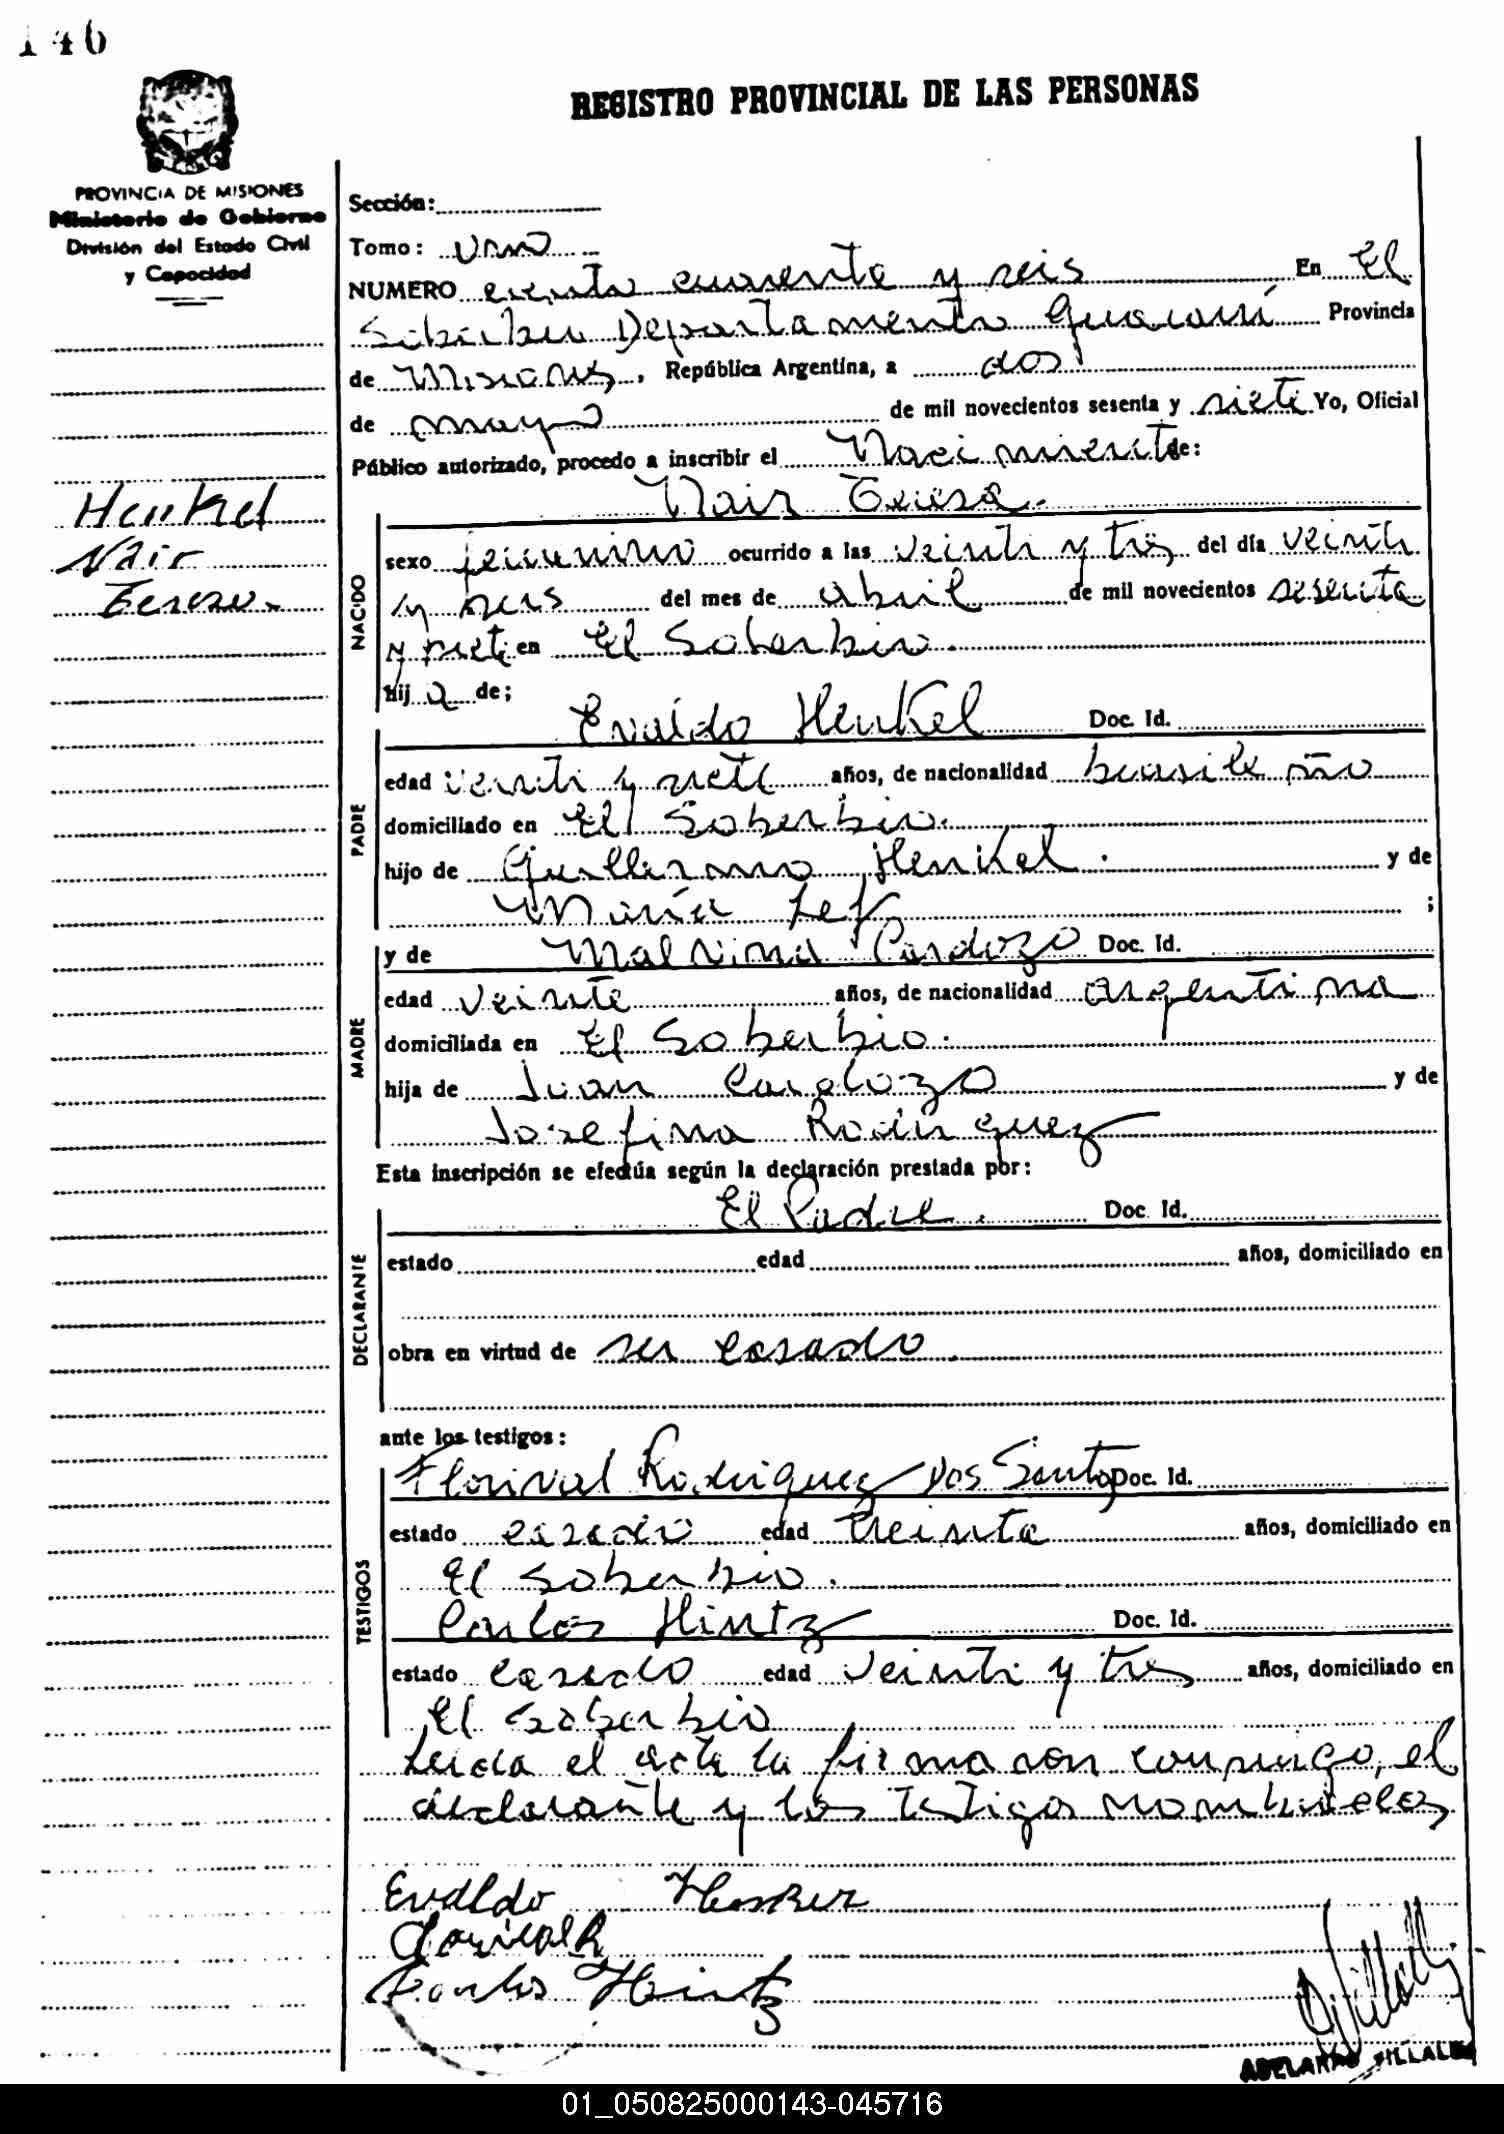 146
REGISTRO PROVINCIAL DE LAS PERSONAS
PROVINCIA DE MISIONES
Ministerio de Gobierno
División del Estado Civil
y Capacidad
Henkel
Nair
Teresa.
Sección:
Tomo: Uno
NUMERO ciento cuarenta y seis En El
Soberbio Departamento Guaraní Provincia
de Misiones, República Argentina, a dos
de mayo de mil novecientos sesenta y siete Yo, Oficial
Público autorizado, procedo a inscribir el Nacimiento de:
Nair Teresa.
NACIDO
sexo femenino ocurrido a las veinti y tres del día veinti
y seis del mes de abril de mil novecientos sesenta
y siete en El Soberbio.
hij a de;
PADRE
Evaldo Henkel Doc. Id.
edad veinti y siete años, de nacionalidad brasileño
domiciliado en El Soberbio.
hijo de Guillermo Henkel. y de
María Lef ;
MADRE
y de Malvina Cardozo Doc. Id.
edad veinte años, de nacionalidad argentina
domiciliada en El Soberbio.
hija de Juan Cardozo y de
Josefina Rodriguez
Esta inscripción se efectúa según la declaración prestada por:
DECLARANTE
El Padre. Doc. Id.
estado edad años, domiciliado en
obra en virtud de ser casado.
ante los testigos:
TESTIGOS
Florival Rodriguez Dos Santos Doc. Id.
estado casado edad treinta años, domiciliado en
El Soberbio.
Carlos Hintz Doc. Id.
estado casado edad veinti y tres años, domiciliado en
El Soberbio
Leida el acta la firmaron conmigo, el
declarante y los testigos nombrados
Evaldo Henker
Carlos Hintz
ADELARDO VILLALBA
01_050825000143-045716